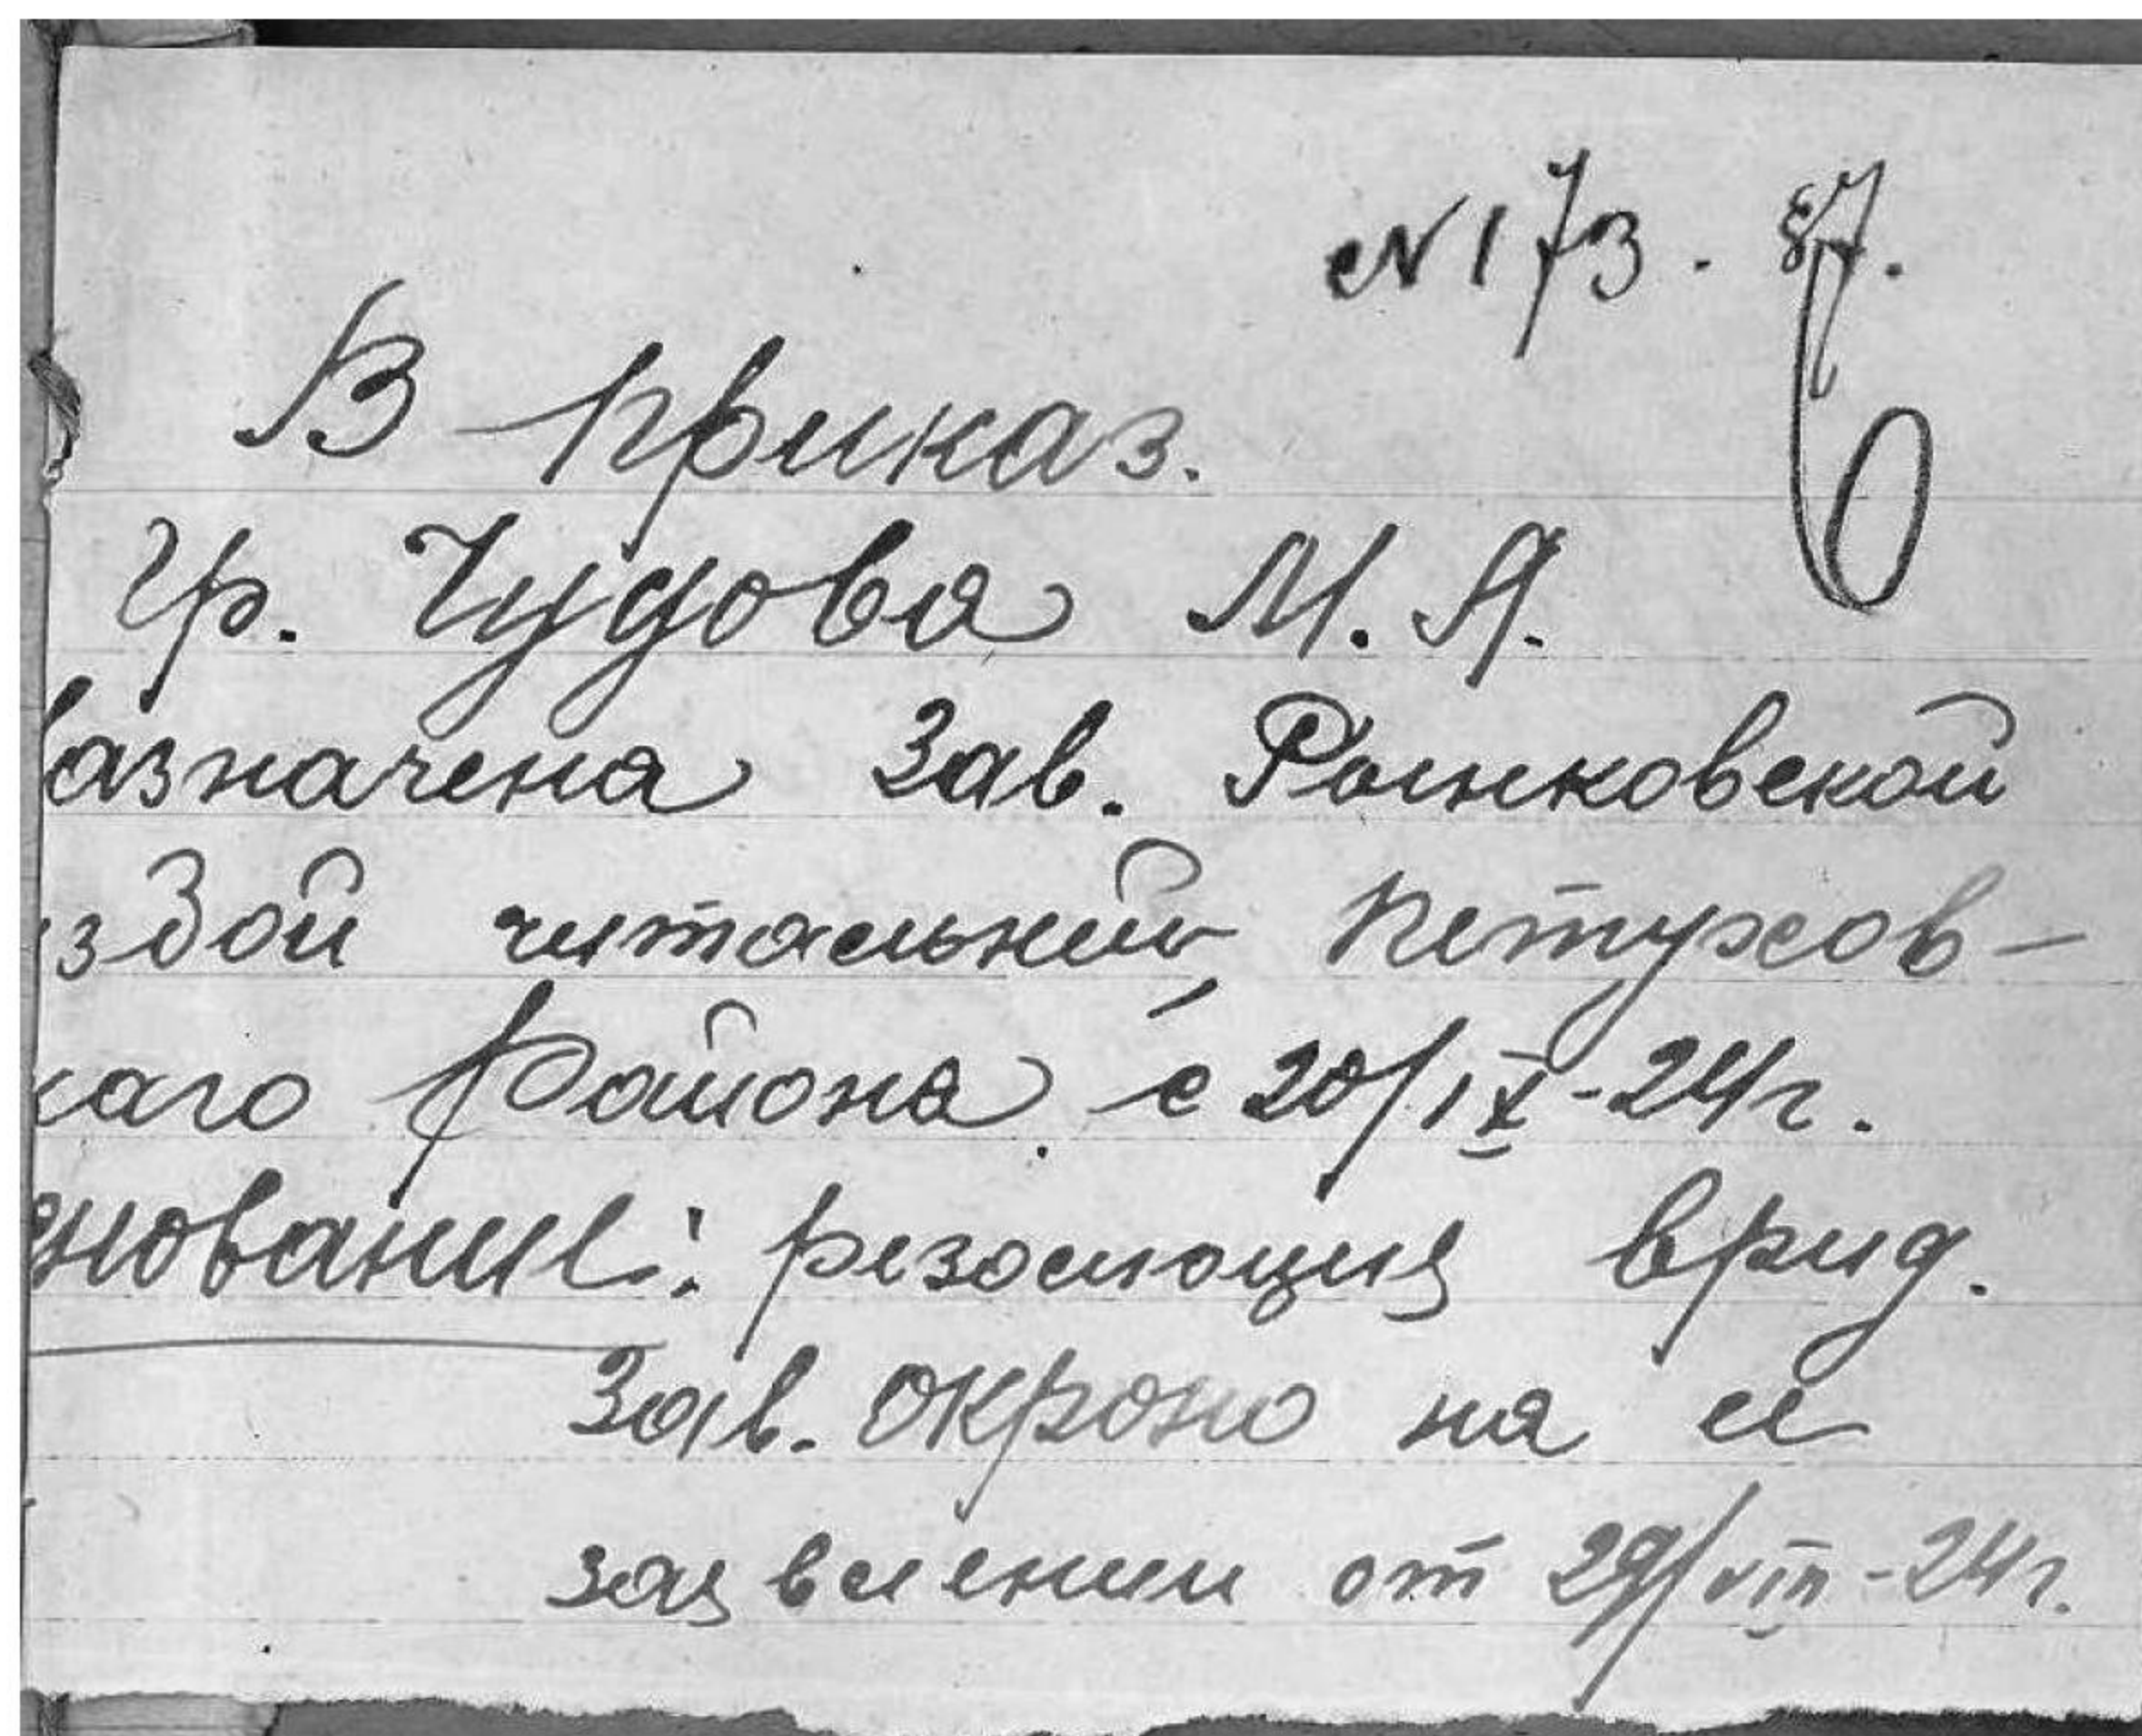 №173. 87.
В приказ.
Гр. Чудова М. Я.
азначена Зав. Рынковской
збой читальней, Петухов-
каго Района. с 20/IX-24г.
снование: резолюция врид.
Зав. Окроно на ее
заявлении от 29/VIII-24г.